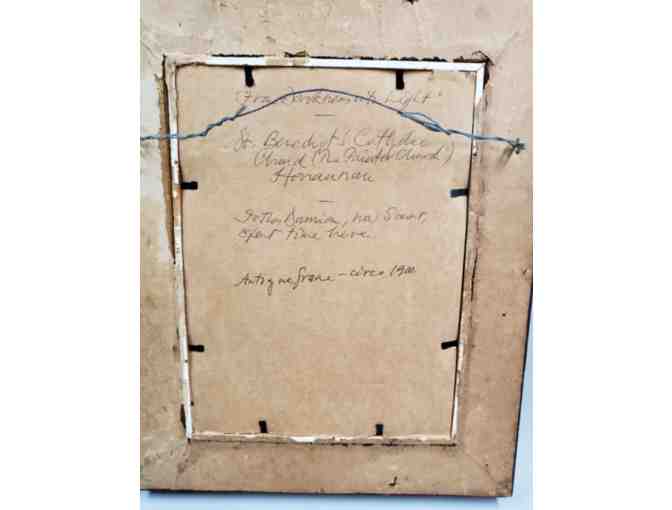 "From Darkness into Light"
St. Benedict's Catholic
Church (The Painted Church)
Honaunau
Father Damien, now Saint,
spent time here.
Antique frame – circa 1900